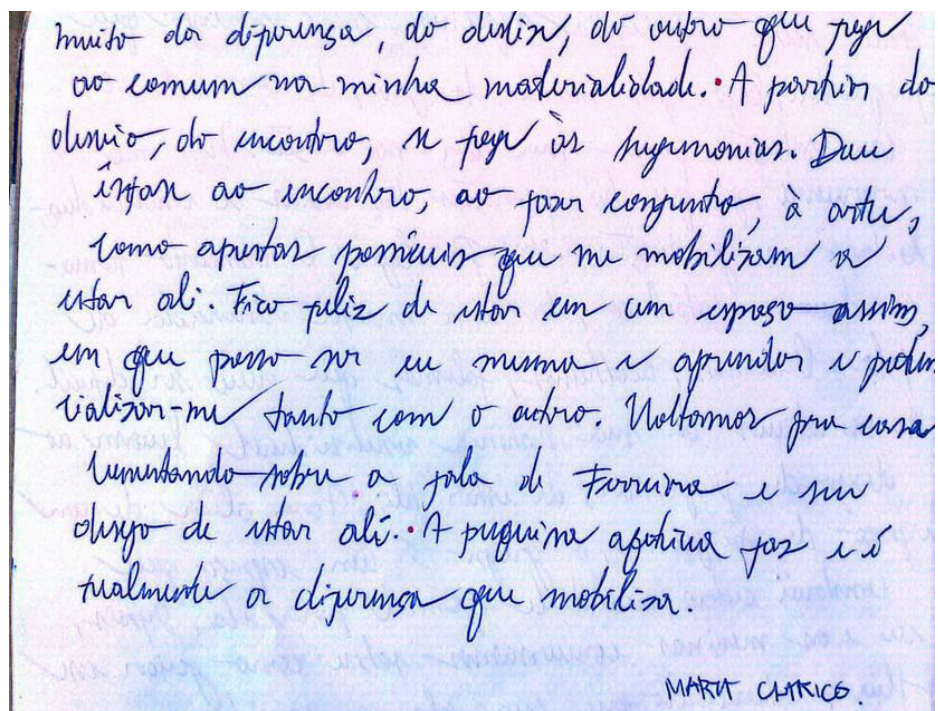 muito da diferença, do desliz, do outro que foge
ao comum na minha materialidade. A partir do
desvio, do encontro, se foge às hegemonias. Deu
ao encontro, ao fazer conjunto, à arte,
como apostas possíveis que me mobilizam a
estar ali. Fico feliz de estar em um espaço assim,
em que posso ser eu mesma e aprender e poten
cializar-me tanto com o outro. Voltamos pra casa
comentando sobre a fala de Ferreira e seu
desejo de estar ali. A pesquisa afetiva faz e é
tualmente a diferença que mobiliza.
MARIA